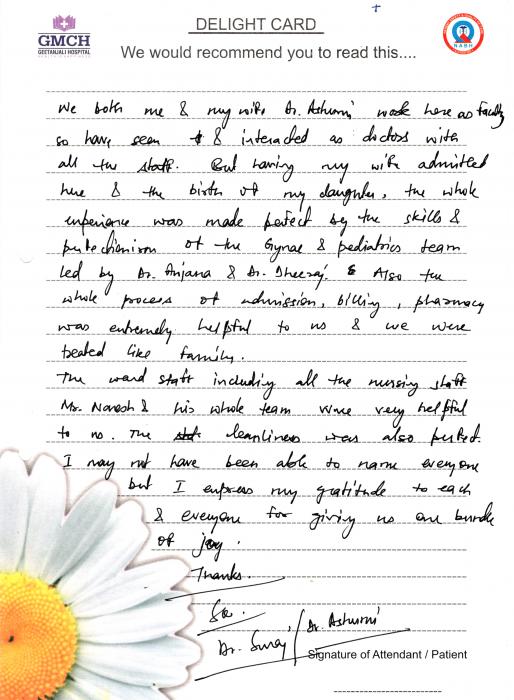 GMCH
GEETANJALI HOSPITAL
DELIGHT CARD
We would recommend you to read this....
NABH
We both me & my wife Dr. Ashumi work here as faculty
so have seen & interacted as doctors with
all the staff. But having my wife admitted
here & the birth of my daughter, the whole
experience was made perfect by the skills &
of the Gynae & pediatrics team
led by Dr. Anjana & Dr. Dheeraj. & Also the
whole process of admission, billing, pharmacy
was extremely helpful to us & we were
treated like family.
The ward staff including all the nursing staff
Mr. Naresh & his whole team were very helpful
to us. The cleanliness was also perfect.
I may not have been able to name everyone
but I express my gratitude to each
& everyone for giving us our bundle
of joy.
Thanks.
Dr. Suraj / Dr. Ashumi
Signature of Attendant / Patient